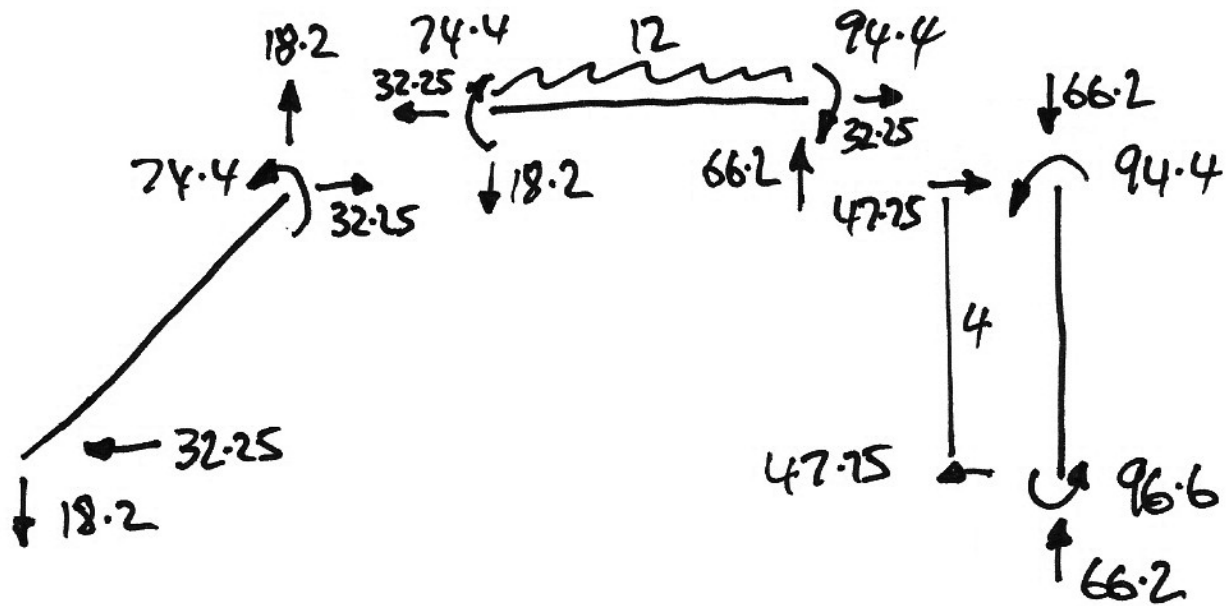 18.2
74.4
12
94.4
32.25
66.2
74.4
32.25
18.2
66.2
32.25
47.75
94.4
4
32.25
18.2
47.75
96.6
66.2